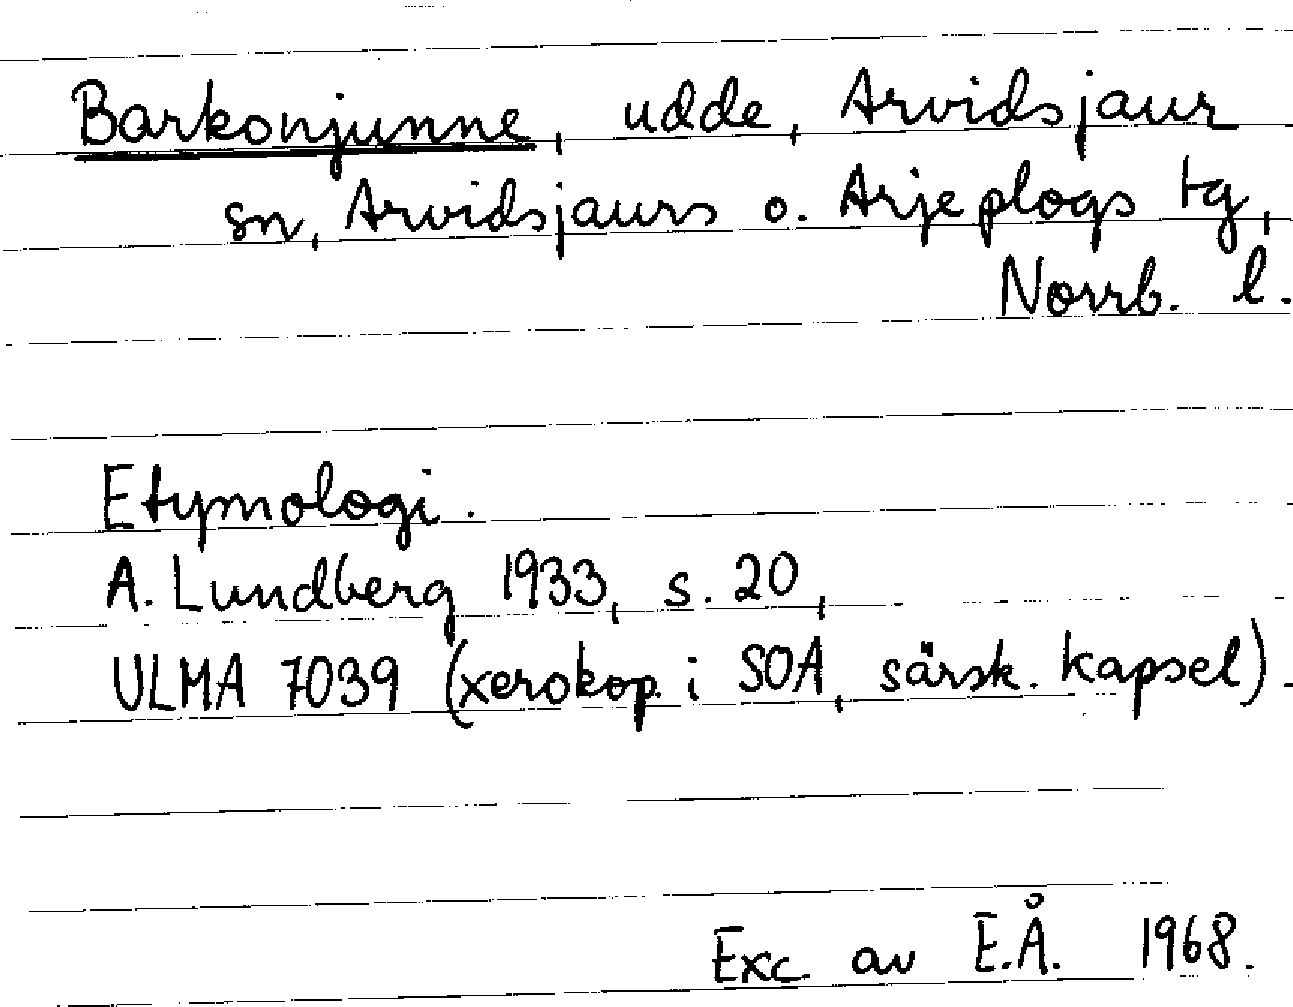 Barkonjunne, udde, Arvidsjaur
sn, Arvidsjaurs o. Arjeplogs tg,
Norrb. l.
Etymologi.
A. Lundberg 1933, s. 20,
ULMA 7039 (xerokop. i SOA, särsk. kapsel).
Exc. av E.Å. 1968.